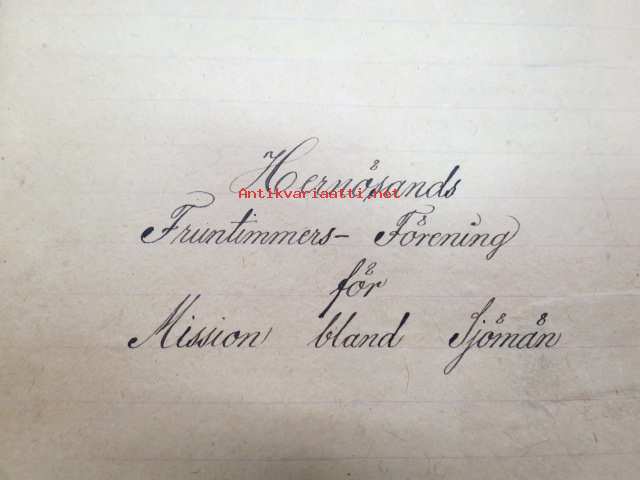 Hernösands
Antikvariaatti.net
Fruntimmers- Förening
för
Mission bland Sjömän